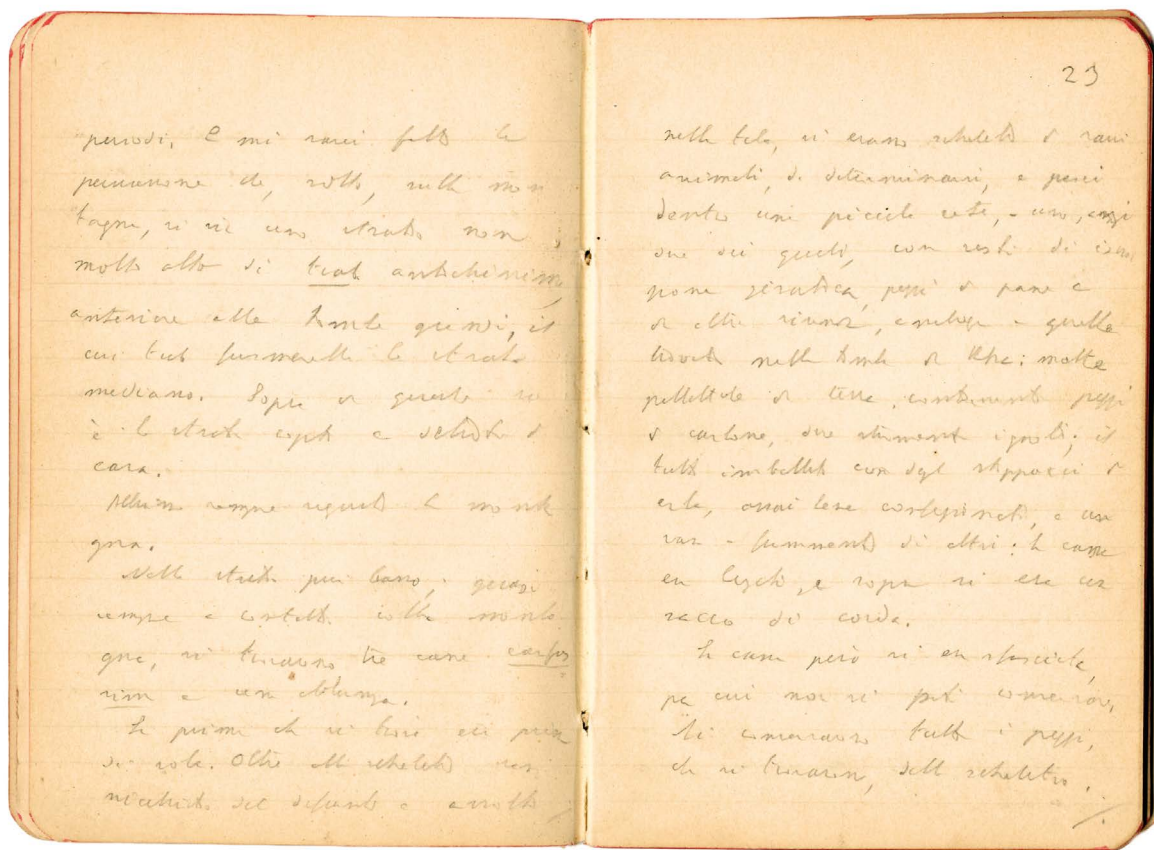 periodi, e mi sarei fatto la
persuasione che, sotto, sulla mon
tagna, vi sia uno strato non
molto alto di tombe antichissime,
anteriore alle tombe quindi, il
cui formerebbe lo strato
mediano. Sopra di queste
è lo strato e detriti di
casa.
sempre riguardo la monta
gna.
Nello strato più basso, quasi
sempre a contatto colla monta
gna, si trovarono tre casse
e una oblunga.
La prima che si trovò era priva
di sole. Oltre allo scheletro
nicchiato del defunto e avvolto
23
nella tela, vi erano scheletri di vari
animali, da determinarsi, e pesci
dentro una piccola cesta, uno, anzi
due dei quali, con resti di iscri
zione jeratica, pezzi di pane e
di altre vivande, analoghe a quelle
trovate nella tomba di Kha: molte
pallottole di terra, contenenti pezzi
di carbone, due strumenti ignoti; il
tutto imballato con degli stoppacci di
erba, assai bene confezionati, e un
vaso e frammenti di altri: la cassa
era legata, e sopra vi era un
sacco di corda.
La cassa però si era sfasciata,
per cui non si poté conservare.
Si conservarono tutti i pezzi,
che si trovarono, dello scheletro.